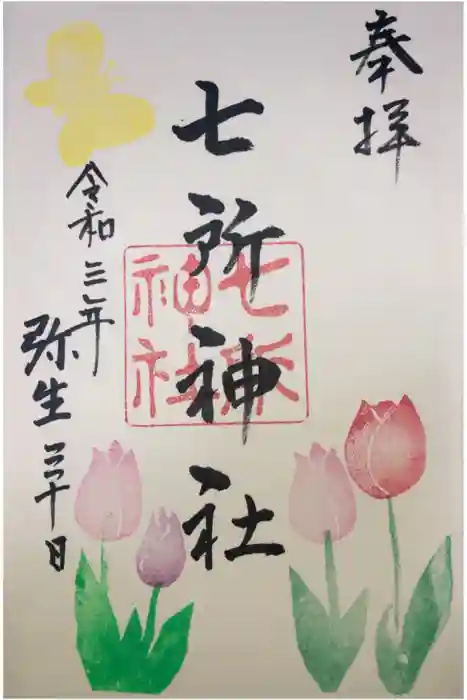 奉拝
七所神社
七所神社
令和三年
弥生三十日